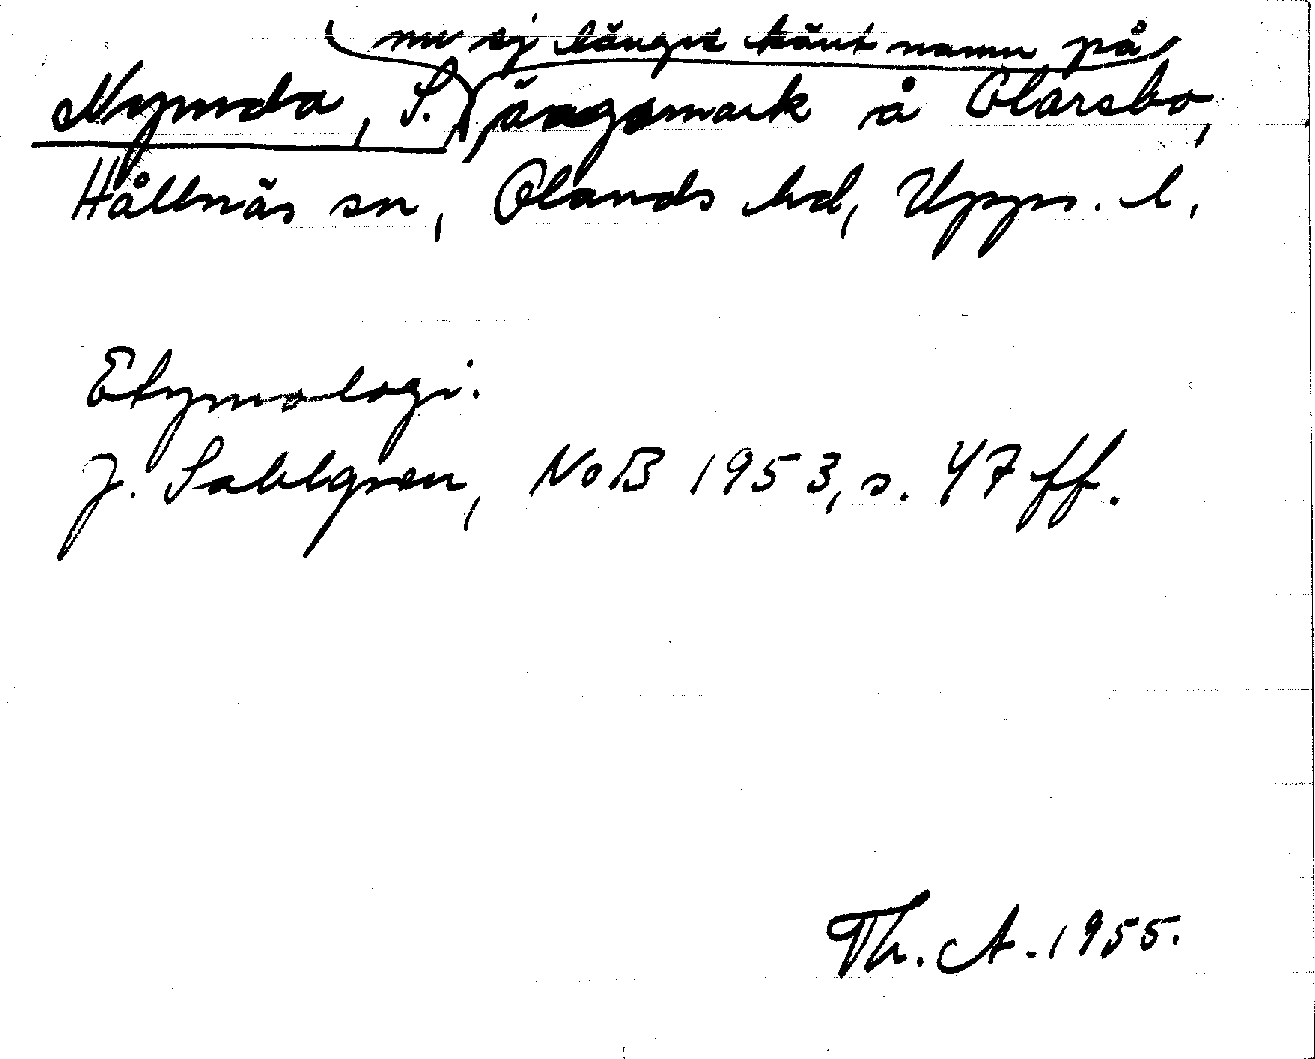 nu ej längre känt namn på
Nymda, S. ängsmark å Olarsbo,
Hållnäs sn, Olands hd, Upps. l.
Etymologi.
J. Sahlgren, NoB 1953, s. 47 ff.
Th. A. 1955.